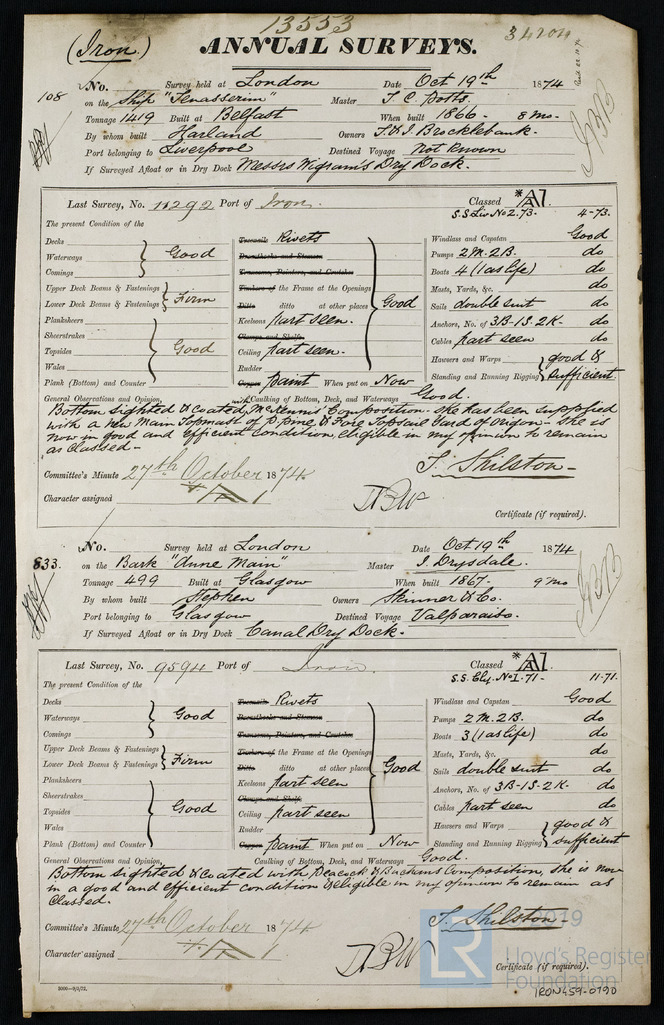 13553
(Iron.)
ANNUAL SURVEYS.
34204
108
No. Survey held at London Date Oct 19th 1874
on the Ship "Tenasserim" Master T. C. Potts.
Tonnage 1419 Built at Belfast When built 1866 - 8 Mo.
By whom built Harland Owners T. & J. Brocklebank.
Port belonging to Liverpool Destined Voyage Not Known
If Surveyed Afloat or in Dry Dock Messrs Wigram's Dry Dock.
Last Survey, No. 11292 Port of Iron. Classed *A1
S.S. Liv No 2. 73. 4-73.
The present Condition of the
Decks
Waterways
Comings
Good
Upper Deck Beams & Fastenings
Lower Deck Beams & Fastenings
Firm
Planksheers
Sheerstrakes
Topsides
Wales
Plank (Bottom) and Counter
Good
Treenails Rivets
Breasthooks and Stemson
Transoms, Pointers, and Crutches
Timbers of the Frame at the Openings
Ditto ditto at other places
Keelsons part seen.
Clamps and Shelfs
Ceiling part seen.
Rudder
Copper Paint When put on Now
Good
Windlass and Capstan Good
Pumps 2 M. 2 B. do
Boats 4 (1 as life) do
Masts, Yards, &c. do
Sails double suit do
Anchors, No. of 3B-1S-2K- do
Cables part seen do
Hawsers and Warps
Standing and Running Rigging
good & sufficient
General Observations and Opinion, with Caulking of Bottom, Deck, and Waterways Good.
Bottom sighted & coated McKennis Composition. She has been supplied
with a new Main Topmast of P. pine & Fore Topsail Yard of Oregon - She is
now in good and efficient condition, eligible in my opinion to remain
as Classed -
Committee's Minute 27th October 1874
Character assigned
T. Shilston -
Certificate (if required).
833.
No. Survey held at London Date Oct 19th 1874
on the Bark "Anne Main" Master J. Drysdale.
Tonnage 499 Built at Glasgow When built 1867. 9 mo
By whom built Stephen Owners Skinner & Co.
Port belonging to Glasgow Destined Voyage Valparaiso.
If Surveyed Afloat or in Dry Dock Canal Dry Dock.
Last Survey, No. 9594 Port of Iron. Classed *A1
S.S. Cly. No 1. 71 - 11-71.
The present Condition of the
Decks
Waterways
Comings
Good
Upper Deck Beams & Fastenings
Lower Deck Beams & Fastenings
Firm
Planksheers
Sheerstrakes
Topsides
Wales
Plank (Bottom) and Counter
Good
Treenails Rivets
Breasthooks and Stemson
Transoms, Pointers, and Crutches
Timbers of the Frame at the Openings
Ditto ditto at other places
Keelsons part seen
Clamps and Shelfs
Ceiling part seen
Rudder
Copper Paint When put on Now
Good
Windlass and Capstan Good
Pumps 2 M. 2 B. do
Boats 3 (1 as life) do
Masts, Yards, &c. do
Sails double suit do
Anchors, No. of 3B-1S-2K- do
Cables part seen do
Hawsers and Warps
Standing and Running Rigging
good & sufficient
General Observations and Opinion, Caulking of Bottom, Deck, and Waterways Good.
Bottom sighted & coated with Peacock & Buchans Composition, she is now
in a good and efficient condition & eligible in my opinion to remain as
Classed.
Committee's Minute 27th October 1874
Character assigned
T. Shilston -
Certificate (if required).
LR
2019
Lloyd's Register
Foundation
IRON459-0190